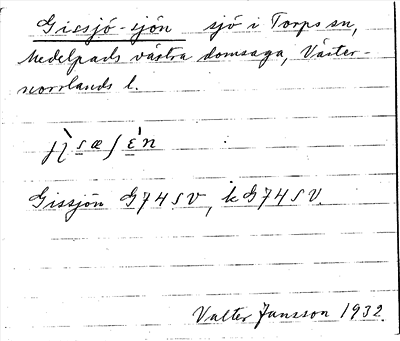 Gissjö-sjön sjö i Torps sn,
Medelpads västra domsaga, Väster-
norrlands l.
Gissjön G74SV, k G74SV.
Valter Jansson 1932.